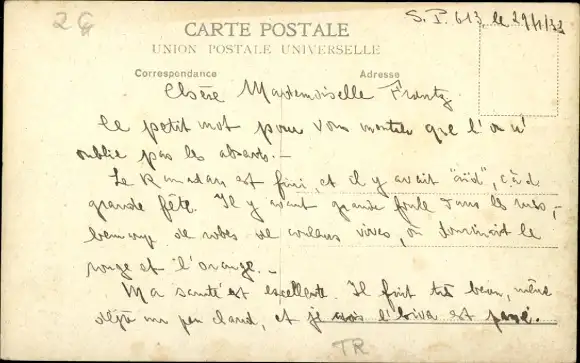 2G
S.P. 613, le 29/1/33
CARTE POSTALE
UNION POSTALE UNIVERSELLE
Correspondance
Adresse
Chère Mademoiselle Frantz
Ce petit mot pour vous montrer que l'on n'
oublie pas les absents. -
Le Ramadan est fini, et il y avait "aïd", c.à.d
grande fête. Il y avait grande foule dans les rues, -
beaucoup de robes de couleurs vives, où dominait le
rouge et l'orange. -
Ma santé est excellente. Il fait très beau, même
déjà un peu chaud, et je l'hiver est passé.
TR